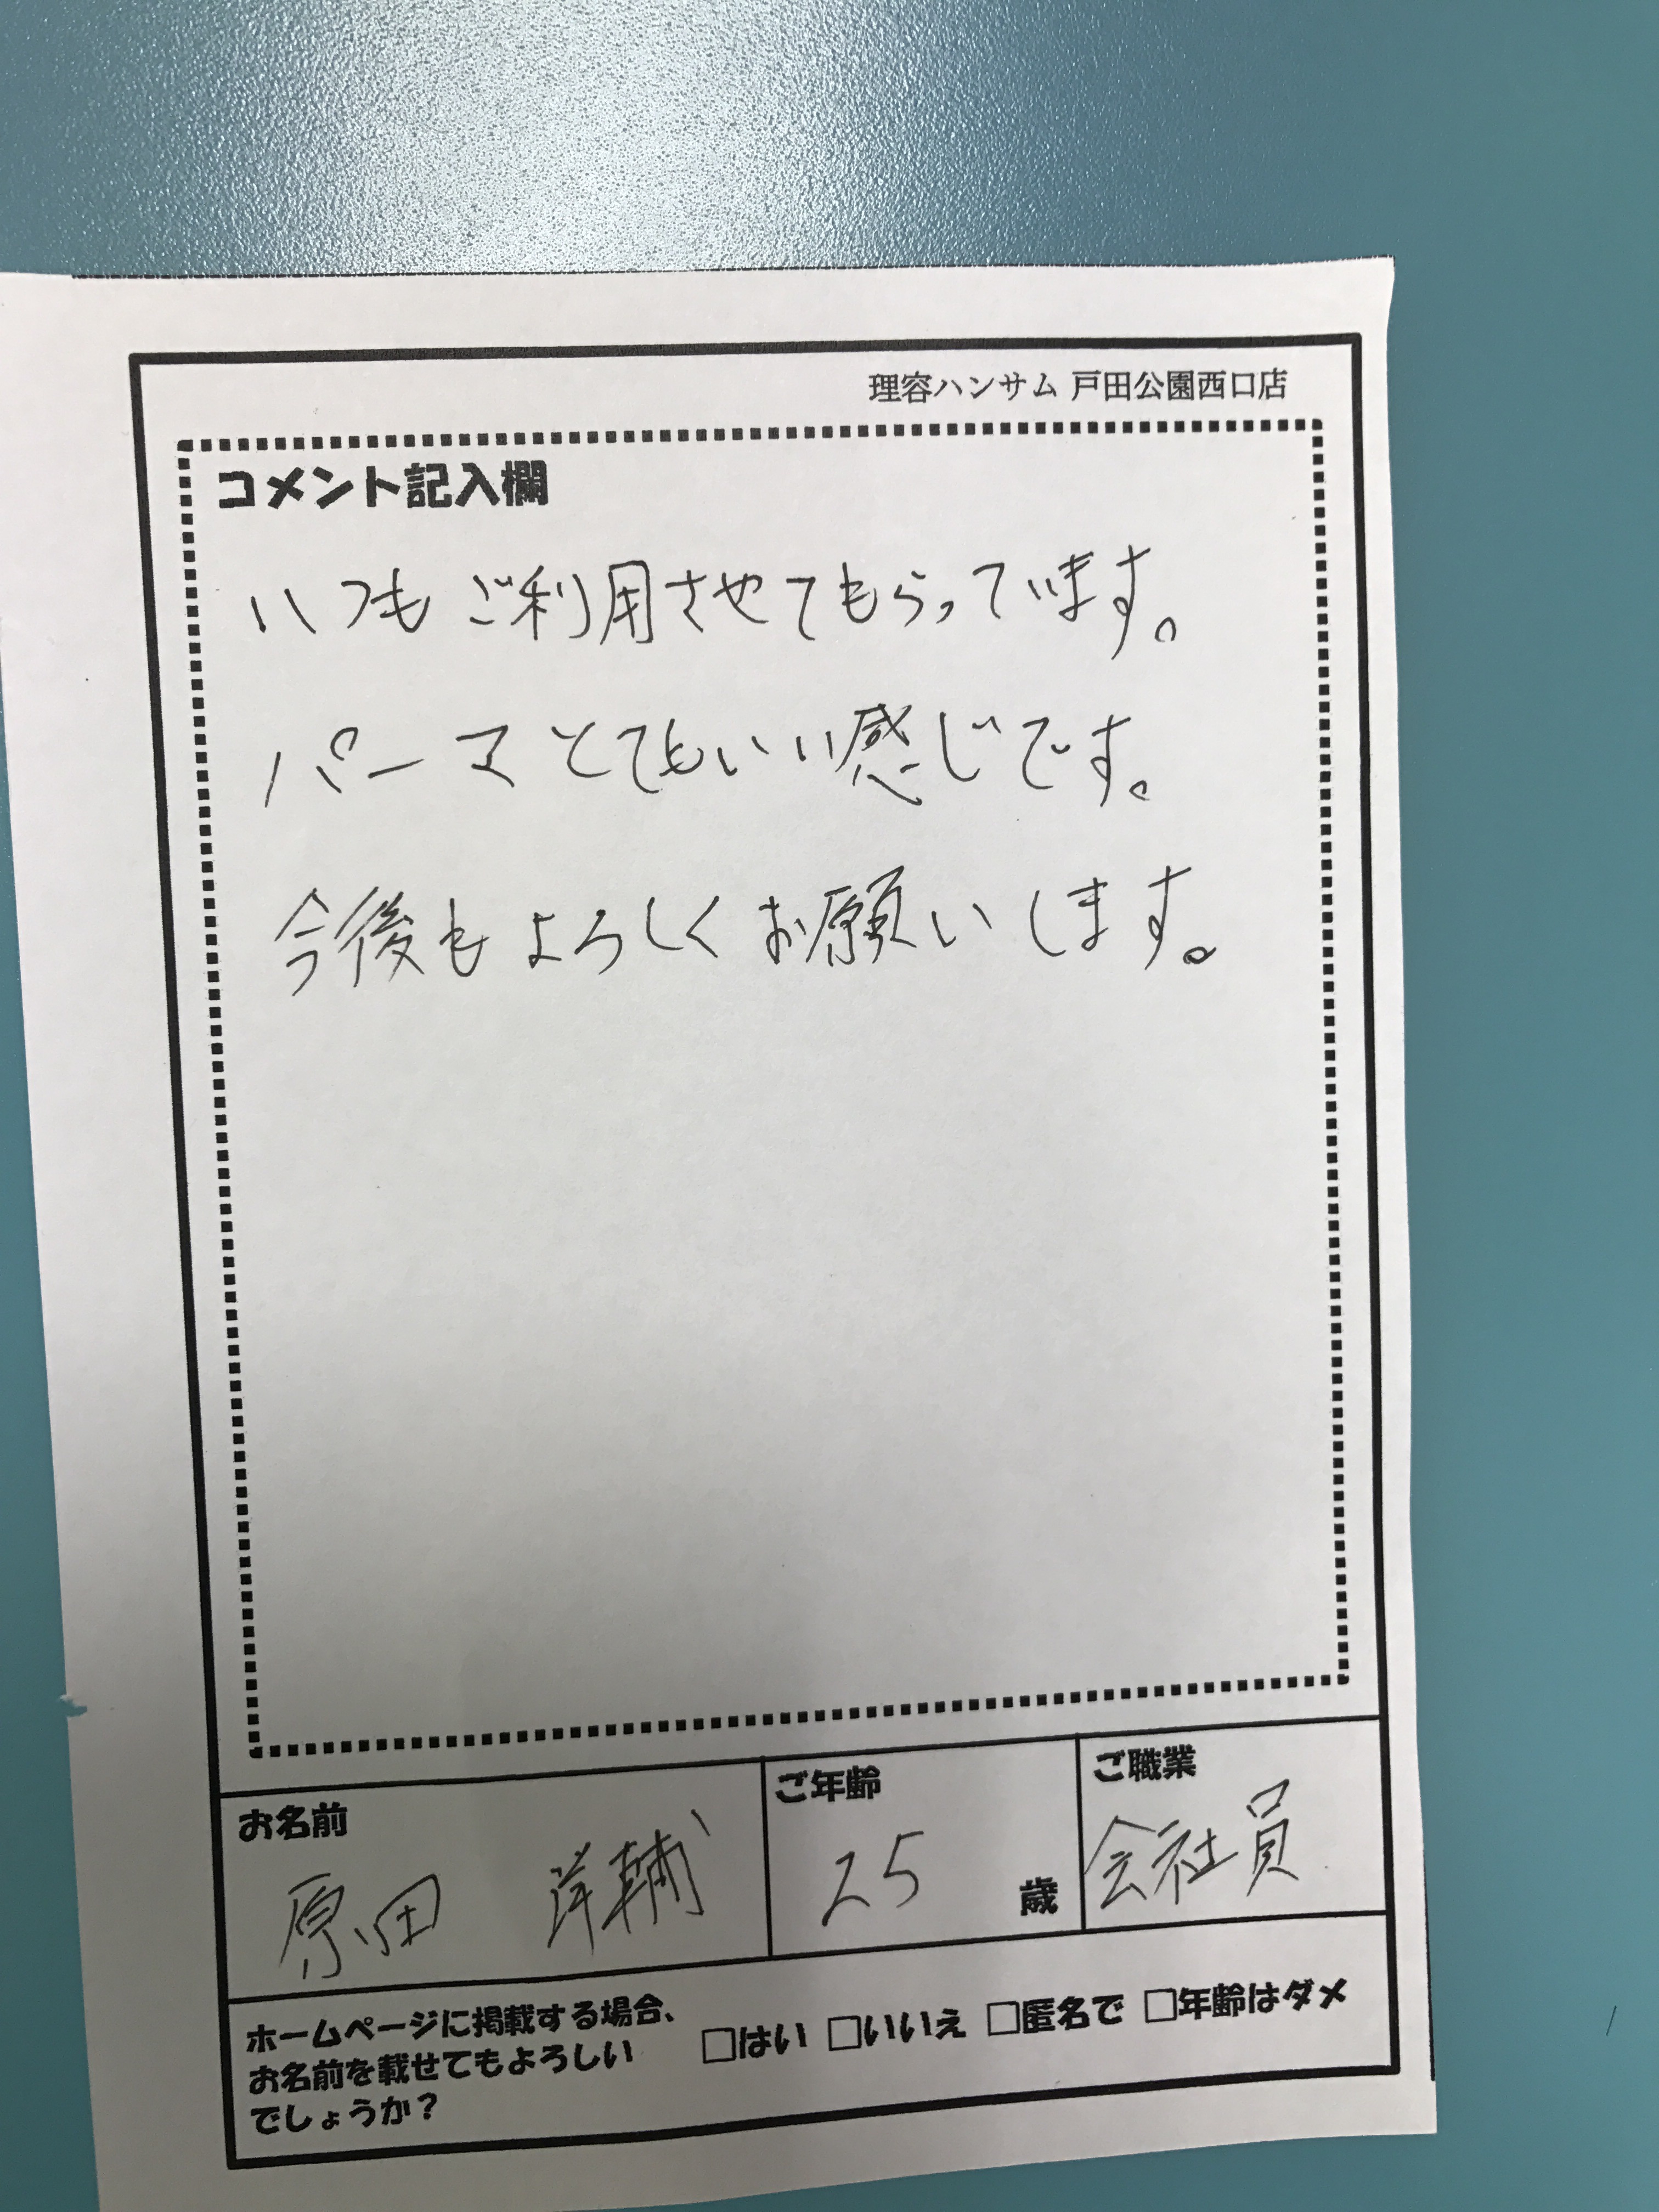 理容ハンサム 戸田公園西口店
コメント記入欄
いつもご利用させてもらっています。
パーマとてもいい感じです。
今後もよろしくお願いします。
お名前
原田 洋輔
ご年齢
25 歳
ご職業
会社員
ホームページに掲載する場合、
お名前を載せてもよろしい
でしょうか？
□はい □いいえ □匿名で □年齢はダメ